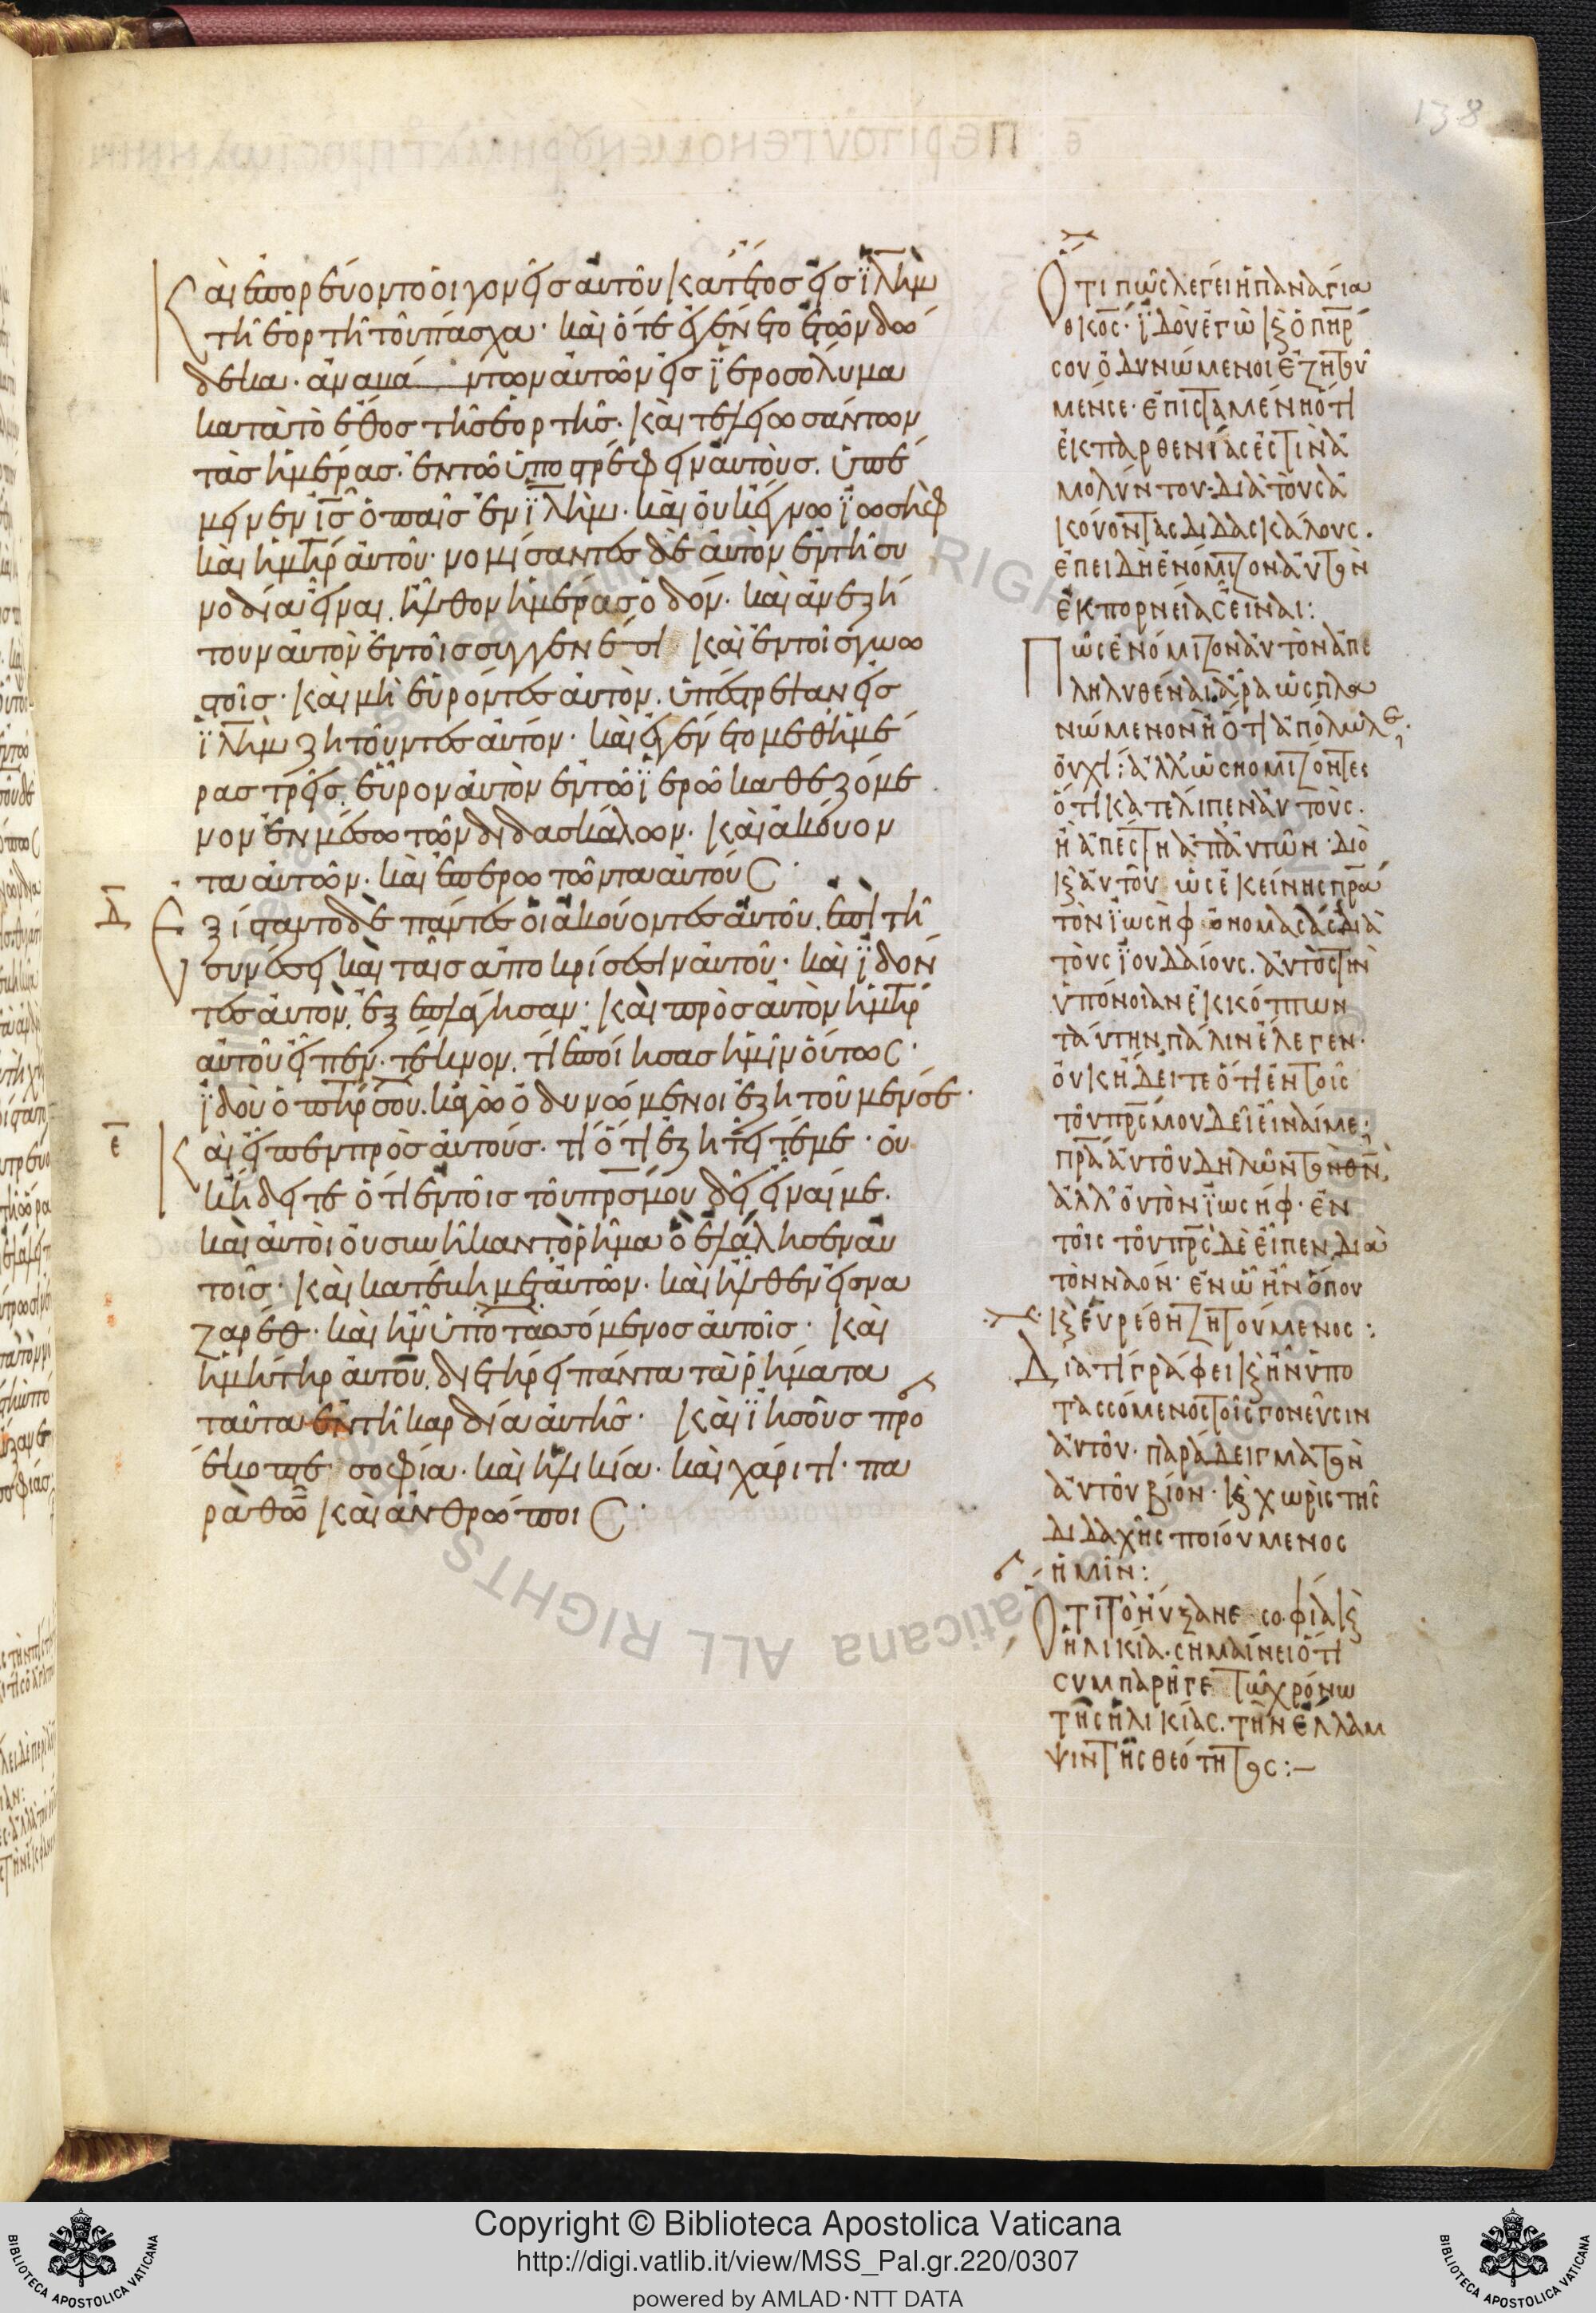 138
Καὶ ἐπορεύοντο οἱ γονεῖσ αὐτοῦ κατ ἔτοσ εἰσ ϊλῆμ
τῆ ἑορτῆ τοῦ πάσχα· καὶ ὅτε ἐγένετο ἐτῶν δώ
δεκα· ἀναμά ντων αὐτῶν εἰσ ϊεροσόλυμα
κατὰ τὸ ἔθοσ τῆσ ἑορτῆσ· καὶ τελειωσάντων
τὰσ ἡμέρασ· ἐν τῶ ὑποστρέφειν αὐτοὺσ. ὑπέ
μεινεν ισ ὁ παῖσ ἐν ϊλήμ· καὶ οὐκ ἔγνω ϊωσὴφ
καὶ ἡ μηρ αὐτοῦ· νομίσαντεσ δὲ αὐτὸν ἐν τῆ συ
νοδία εἶναι. ἦλθον ἡμέρασ ὁδόν· καὶ ἀνεζή
τουν αὐτὸν ἐν τοῖσ συγγενέσι καὶ ἐν τοῖσ γνω
στοῖσ· καὶ μὴ εὑρόντεσ αὐτὸν. ὑπέστρεψαν εἰσ
ϊλῆμ ζητοῦντεσ αὐτόν· καὶ ἐγένετο μεθ ἡμέ
ρασ τρεῖσ. εὗρον αὐτὸν ἐν τῶ ϊερῶ καθεζόμε
νον ἐν μέσω τῶν διδασκάλων· καὶ ἀκούον
τα αὐτῶν· καὶ ἐπερωτῶντα αὐτούσ·
Δ
Ἐξίσταντο δὲ πάντεσ οἱ ἀκούοντεσ αὐτοῦ. ἐπὶ τῆ
συνέσει καὶ ταῖσ ἀποκρίσεσιν αὐτοῦ· καὶ ϊδόν
τεσ αὐτὸν, ἐξεπλάγησαν· καὶ πρὸσ αὐτὸν ἡ μηρ
αὐτοῦ εἶπεν· τέκνον, τί ἐποίησασ ἡμῖν οὕτωσ·
ϊδοὺ ὁ πηρ σου. κἀγὼ ὀδυνώμενοι ἐζητοῦμέν σε·
ε
Καὶ εἶπεν πρὸσ αὐτούσ· τί ὅτι ἐζητεῖτέ με· οὐ
κ ἤδειτε ὅτι ἐν τοῖσ τοῦ πρσ μου δεῖ εἶναί με.
καὶ αὐτοὶ οὐ συνῆκαν τὸ ῥῆμα ὃ ἐλάλησεν αὐ
τοῖσ· καὶ κατέβη μετ αὐτῶν· καὶ ἦλθεν εἰσ να
ζαρέθ· καὶ ἦν ὑποτασσόμενοσ αὐτοῖσ· καὶ
ἡ μήτηρ αὐτοῦ. διετήρει πάντα τὰ ῥήματα
ταῦτα ἐν τῆ καρδία αὐτῆσ· καὶ ϊησοῦσ προ
έκοπτε σοφία· καὶ ἡλικία· καὶ χάριτι· πα
ρὰ θῶ καὶ ἀνθρώποισ·
Ὅτι πῶς λέγει ἡ παναγία
θκος· ϊδοὺ ἐγὼ κ ὁ πηρ
σου ὀδυνώμενοι ἐζητοῦ
μέν σε· ἐπισταμένη ὅτι
ἐκ παρθενίας ἐστὶν ἀ
μολύντου· διὰ τοὺς ἀ
κούοντας διδασκάλους.
ἐπειδὴ ἐνόμιζον αὐτὸν
ἐκ πορνείας εἶναι:
Πῶς ἐνόμιζον αὐτὸν ἀπε
ληλυθέναι ἆρα ὡς πλα
νώμενον ἢ ὅτι ἀπόλωλε·
οὐχί: ἀλλ ὡς νομίζοντες
ὅτι κατέλιπεν αὐτούς.
ἢ ἀπέστη ἀπ αὐτῶν· διὸ
κ αὐτοῦ ὡς ἐκείνης πρα
τὸν ϊωσὴφ ὀνομασάσ διὰ
τοὺς ϊουδαίους. αὐτὸς τὴν
ὑπόνοιαν ἐκκόπτων
ταύτην πάλιν ἔλεγεν·
οὐκ ἤδειτε ὅτι ἐν τοῖς
τοῦ πρς μου δεῖ εἶναί με·
πρα αὐτοῦ δηλῶν τὸν θν,
ἀλλ οὐ τὸν ϊωσήφ· ἐν
τοῖς τοῦ πρς δὲ εἶπεν διὰ
τὸν ναόν· ἐν ὧ ἦν ὅπου
κ εὑρέθη ζητούμενος:
Διατί γράφει κ ἦν ὑπο
τασσόμενος τοῖς γονεῦσιν
αὐτοῦ· παράδειγμα τὸν
αὐτοῦ βίον· κ χωρὶς τῆς
διδαχῆς ποιούμενος
ἡμῖν:
Ὅτι τὸ ηὔξανε σοφία κ
ἡλικία· σημαίνει ὅτι
συμπαρῆγε τῶ χρόνω
τῆς ἡλικίας. τὴν ἔλλαμ
ψιν τῆς θεότητος:–
Copyright © Biblioteca Apostolica Vaticana
http://digi.vatlib.it/view/MSS_Pal.gr.220/0307
powered by AMLAD·NTT DATA
BIBLIOTECA APOSTOLICA VATICANA
BIBLIOTECA APOSTOLICA VATICANA